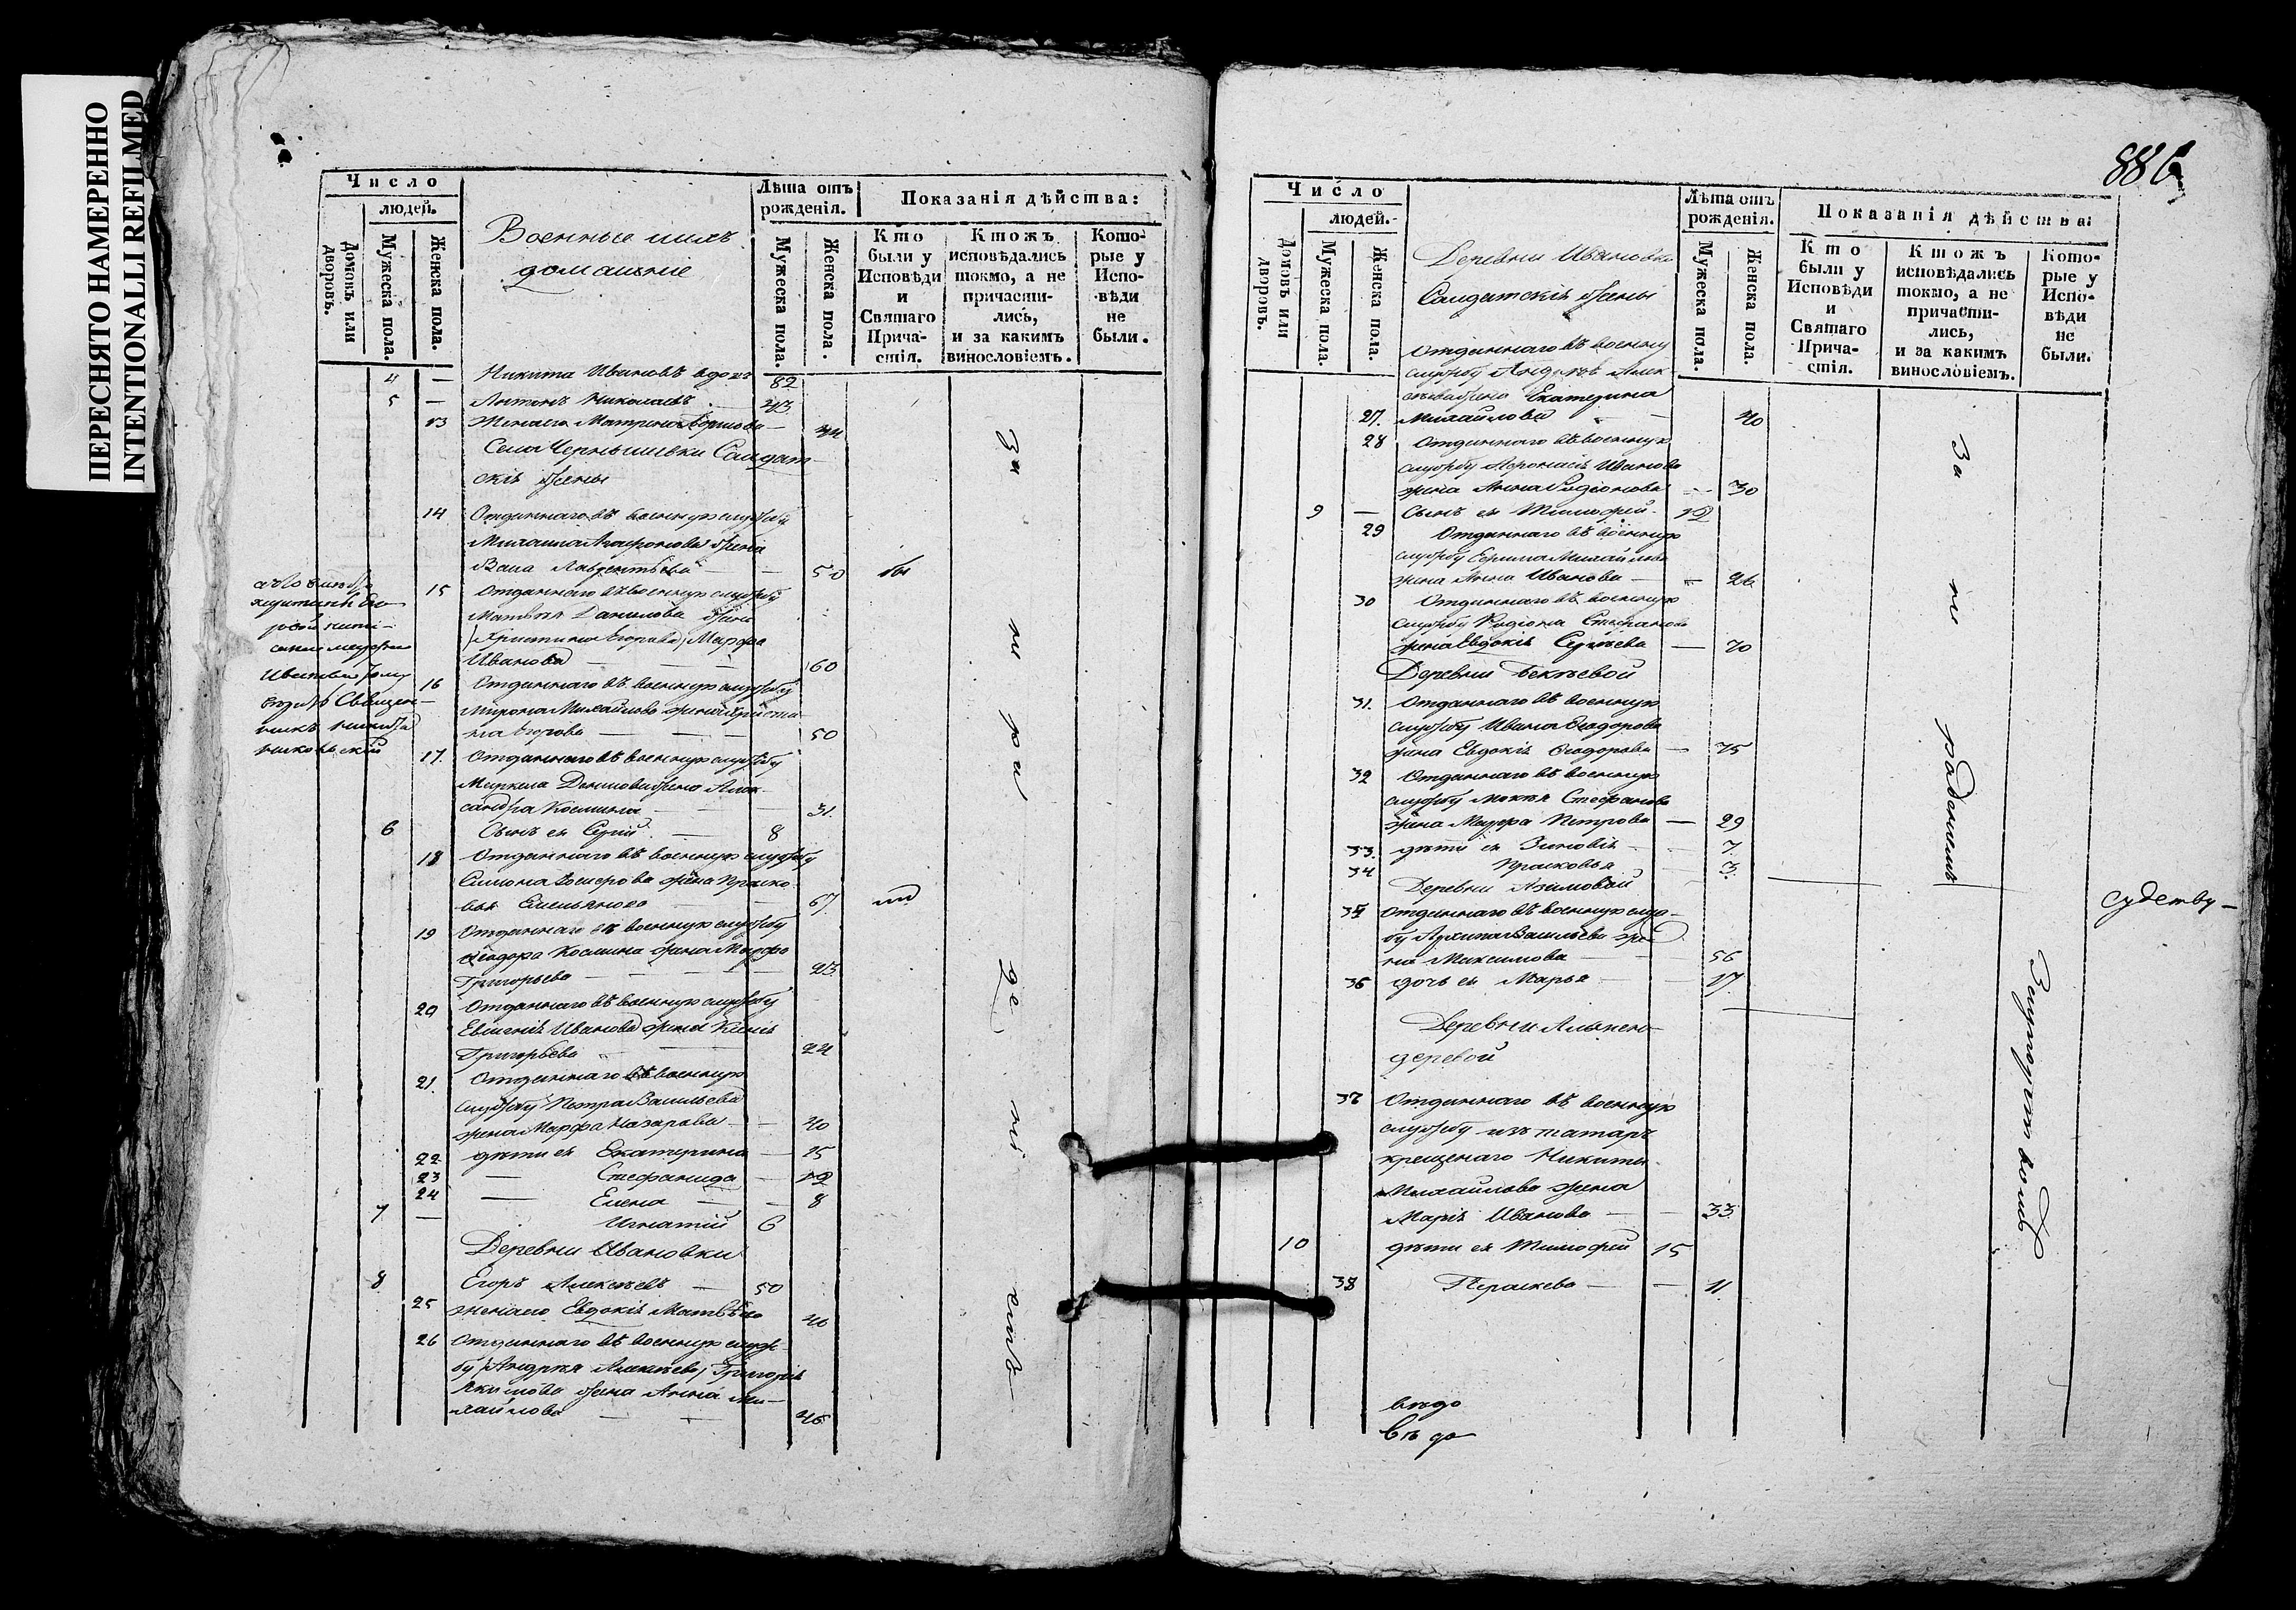 ПЕРЕСНЯТО НАМЕРЕННО
INTENTIONALLI REFILMED
Число
людей.
Домовъ или дворовъ.
Мужеска пола.
Женска пола.
Военные ихъ
домашніе
Лѣта отъ рожденія.
Мужеска пола.
Женска пола.
Показанія дѣйства:
Кто были у Исповѣди и Святаго Прича-стія.
Ктожъ исповѣдались токмо, а не причасти-лись, и за какимъ винословіемъ.
Кото-рые у Испо-вѣди не были.
4 — Никита Ивановъ вдовъ 82
5 — Антонъ Николаевъ 43
13 Жена его Матрона
Села Чернышевки Салдат
скіе жены
14 Отданнаго въ военную службу
Михаила Агафонова жена
Васа Лаврентьева — 50 бы
15 Отданнаго въ военную службу
Матвея Данилова жена
/Христина Егорова/ Марфа
Иванова — — — 60
16 Отданнаго въ военную службу
Мирона Михайлова жена Христи
на Егорова — — — 50
17. Отданнаго въ военную службу
Маркела Данилова жена Алек-
сандра Космина — — 31.
6 Сынъ ея Сергій — 8
18 Отданнаго въ военную службу
Симона жена Праско
вья Емельянова — — 67
19 Отданнаго въ военную службу
Ѳеодора Космина жена Марфа
Григорьева — — — 23
20 Отданнаго въ военную службу
Евгенія Иванова жена Ксенія
Григорьева — — 24
21. Отданнаго въ военную
службу Петра Васильева
жена Марфа Назарова — — 40
22 дѣти ея Екатерина — 15
23 — Стефанида — 12
24 — Елена — — 8
7 — Игнатій 6
Деревни Ивановки
8 Егоръ Алексѣевъ — 50
25 жена его Евдокія Матвѣева 40
26 Отданнаго въ военную служ-
бу /Андрея Алексѣева/ Григорія
Якимова жена Анна Ми-
хайлова — — 46
За не ра де ні емъ
886
Число
людей.
Домовъ или дворовъ.
Мужеска пола.
Женска пола.
Деревни Ивановки
Салдатскія жены
Лѣта отъ рожденія.
Мужеска пола.
Женска пола.
Показанія дѣйства:
Кто были у Исповѣди и Святаго Прича-стія.
Ктожъ исповѣдались токмо, а не причасти-лись, и за какимъ винословіемъ.
Кото-рые у Испо-вѣди не были.
Отданнаго въ военну
службу Андрея Алек-
сѣева жена Екатерина
27. Михайлова — — 40
28 Отданнаго въ военную
службу Афонасія Иванова
жена Анна Родіонова — 30
9 — Сынъ ея Тимофей 12
29 Отданнаго въ военную
службу Ефима Михайлова
жена Анна Иванова — — 26
30 Отданнаго въ военную
службу Родіона Степанова
жена Евдокія Сергѣева — 70
Деревни Бекѣевой
31. Отданнаго въ военную
службу Ивана Ѳеодорова
жена Евдокія Ѳеодорова — 75
32 Отданнаго въ военную
службу Мокея Стефанова
жена Марфа Петрова — 29
33. дѣти ея Зиновія — 7.
34 Прасковья — 3.
Деревни Азимовой
35 Отданнаго въ военную служ-
бу Архипа Васильева же
на Максимова — 56
36 дочь ея Марья — — 17
Деревни Альмен
деревой
37 Отданнаго въ военную
службу изъ татаръ
крещенаго Никиты
Михайлова жена
Марія Иванова — — 33
10 дѣти ея Тимофей 15
38 Параскева — — 11
вѣдо
вѣдо
За не раденіемъ
За